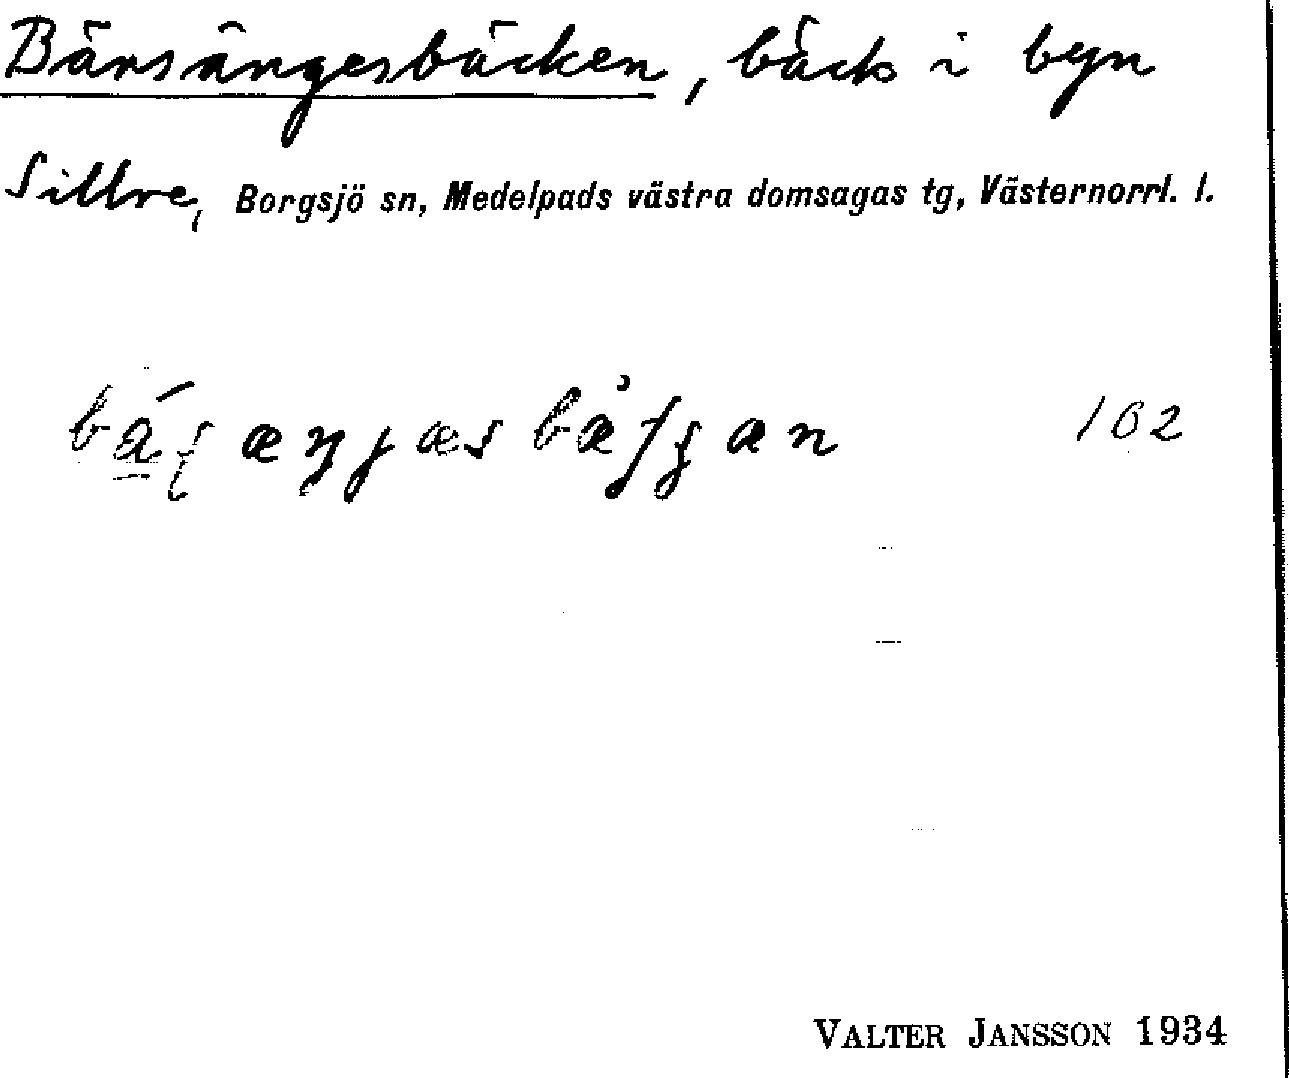 Bärsängesbäcken, bäck i byn
Sillre, Borgsjö sn, Medelpads västra domsagas tg, Västernorrl. l.
162
VALTER JANSSON 1934